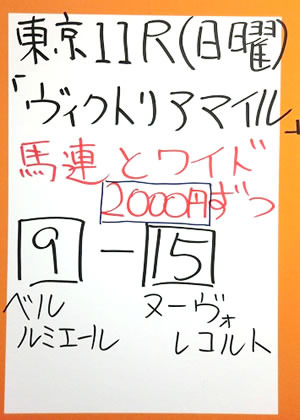 東京11R(日曜)
「ヴィクトリアマイル」
馬連とワイド
2000円ずつ
9-15
ベルルミエール
ヌーヴォレコルト